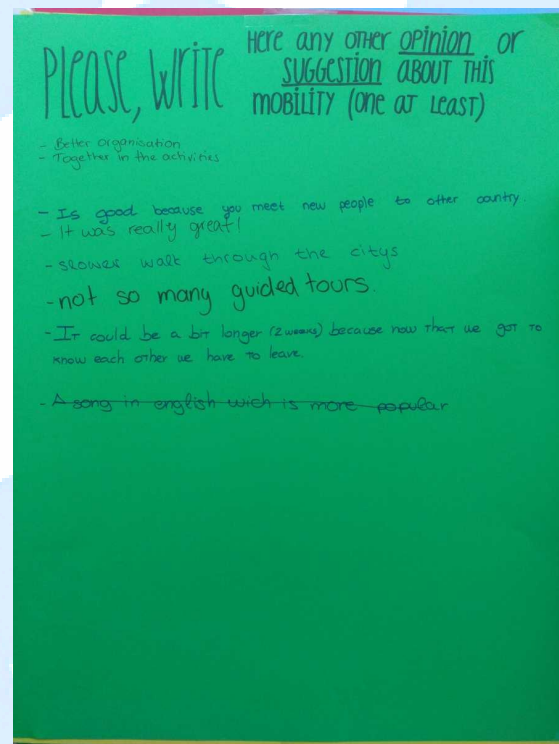 Please, write Here any other opinion or
suggestion about this
mobility (one at least)
- Better organisation
- Together in the activities
- Is good because you meet new people to other country.
- It was really great!
- slower walk through the citys
- not so many guided tours.
- It could be a bit longer (2 weeks) because now that we got to
know each other we have to leave.
- A song in english wich is more popular